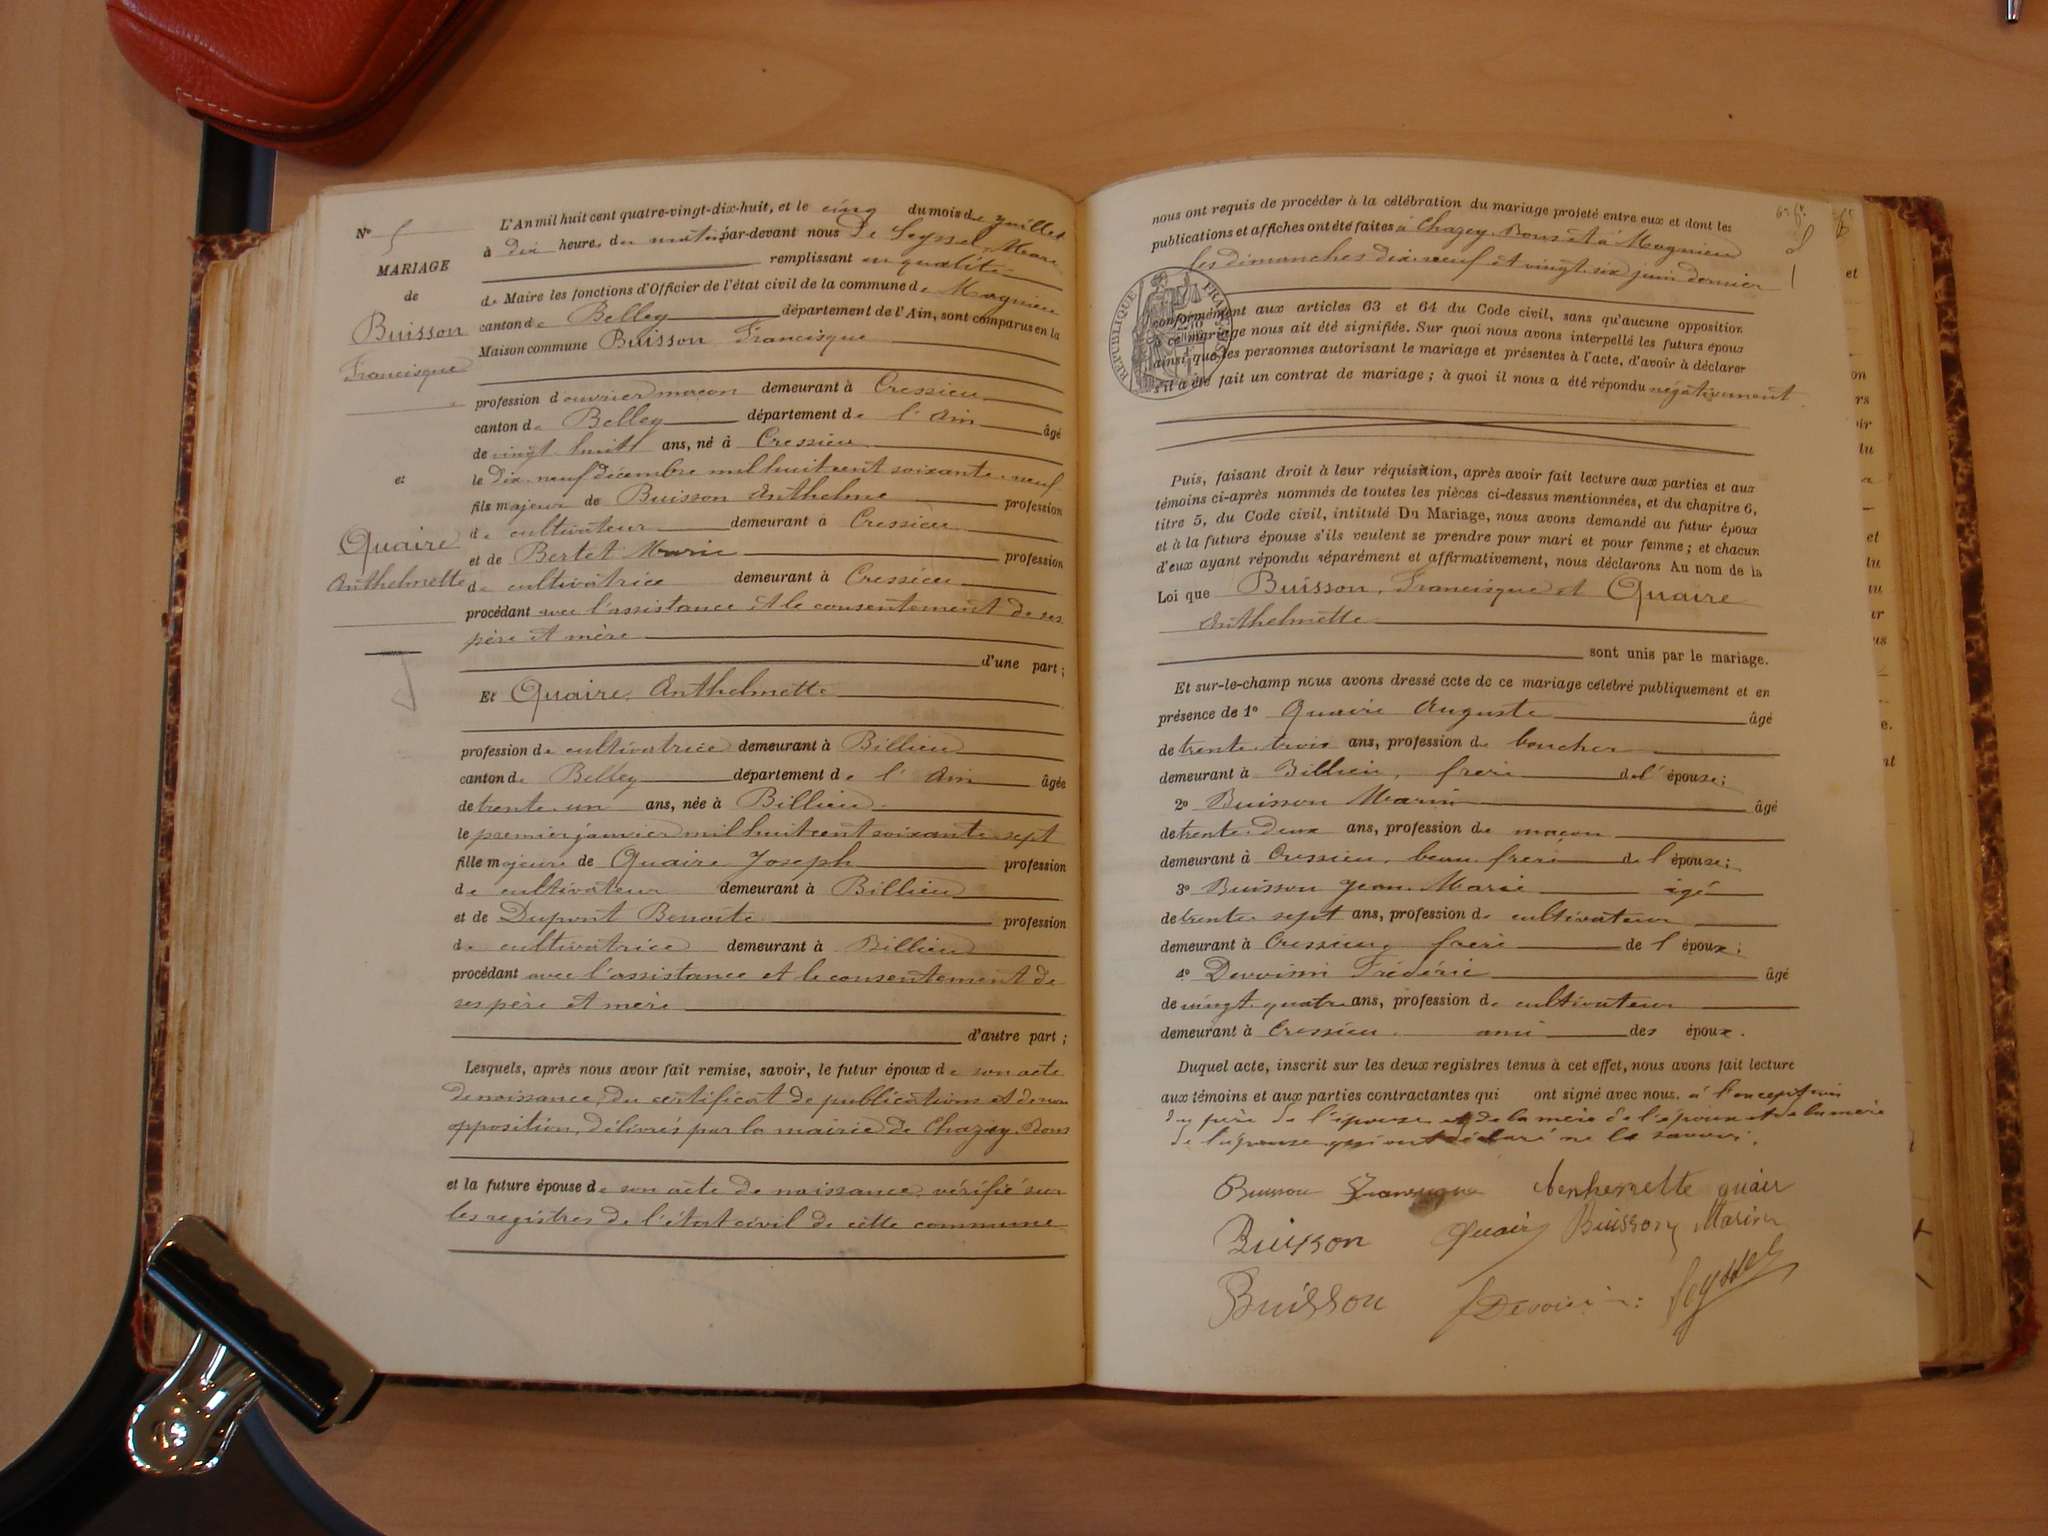 L'An mil huit cent quatre-vingt-dix-huit, et le cinq du mois de juillet
à dix heures du matin par-devant nous De Seyssel, Maire
remplissant en qualité
de Maire les fonctions d'Officier de l'état civil de la commune de Magnieu
canton de Belley département de l'Ain, sont comparus en la
Maison commune Buisson Francisque
profession d'ouvrier maçon demeurant à Cressieu
canton de Belley département de l'Ain âgé
de vingt huit ans, né à Cressieu
le dix neuf décembre mil huit cent soixante neuf
fils majeur de Buisson Anthelme profession
de cultivateur demeurant à Cressieu
et de Bertet Marie profession
de cultivatrice demeurant à Cressieu
procédant avec l'assistance et le consentement de ses
père et mère
d'une part ;
Et Quaire Anthelmette
profession de cultivatrice demeurant à Billieu
canton de Belley département de l'Ain âgée
de trente un ans, née à Billieu
le premier janvier mil huit cent soixante sept
fille majeure de Quaire Joseph profession
de cultivateur demeurant à Billieu
et de Dupont Benoite profession
de cultivatrice demeurant à Billieu
procédant avec l'assistance et le consentement de
ses père et mère
d'autre part ;
Lesquels, après nous avoir fait remise, savoir, le futur époux de son acte
de naissance, du certificat de publications et de non
opposition, délivrés par la mairie de Chazey-Bons
et la future épouse de son acte de naissance, vérifié sur
les registres de l'état civil de cette commune
N° 5
MARIAGE
de
Buisson
Francisque
et
Quaire
Anthelmette
nous ont requis de procéder à la célébration du mariage projeté entre eux et dont les
publications et affiches ont été faites à Chazey-Bons et à Magnieu
les dimanches dix neuf et vingt six juin dernier
conformément aux articles 63 et 64 du Code civil, sans qu'aucune opposition
à ce mariage nous ait été signifiée. Sur quoi nous avons interpellé les futurs époux
ainsi que les personnes autorisant le mariage et présentes à l'acte, d'avoir à déclarer
s'il a été fait un contrat de mariage ; à quoi il nous a été répondu négativement
RÉPUBLIQUE FRANÇAISE
Puis, faisant droit à leur réquisition, après avoir fait lecture aux parties et aux
témoins ci-après nommés de toutes les pièces ci-dessus mentionnées, et du chapitre 6,
titre 5, du Code civil, intitulé Du Mariage, nous avons demandé au futur époux
et à la future épouse s'ils veulent se prendre pour mari et pour femme ; et chacun
d'eux ayant répondu séparément et affirmativement, nous déclarons Au nom de la
Loi que Buisson, Francisque et Quaire
Anthelmette
sont unis par le mariage.
Et sur-le-champ nous avons dressé acte de ce mariage célébré publiquement et en
présence de 1° Quaire Auguste âgé
de trente trois ans, profession de boucher
demeurant à Billieu, frère de l'épouse ;
2° Buisson Marin âgé
de trente deux ans, profession de maçon
demeurant à Cressieu, beau frère de l'épouse ;
3° Buisson Jean Marie âgé
de trente sept ans, profession de cultivateur
demeurant à Cressieu, frère de l'époux ;
4° Devoisin Frédéric âgé
de vingt quatre ans, profession de cultivateur
demeurant à Cressieu ami des époux.
Duquel acte, inscrit sur les deux registres tenus à cet effet, nous avons fait lecture
aux témoins et aux parties contractantes qui ont signé avec nous. à l'exception
du père de l'épouse et de la mère de l'époux et de la mère
de l'épouse qui ont déclaré ne le savoir.
Buisson Francisque Anthemette quair
Buisson Quair Buisson Marin
Buisson Devoisin Seyssel